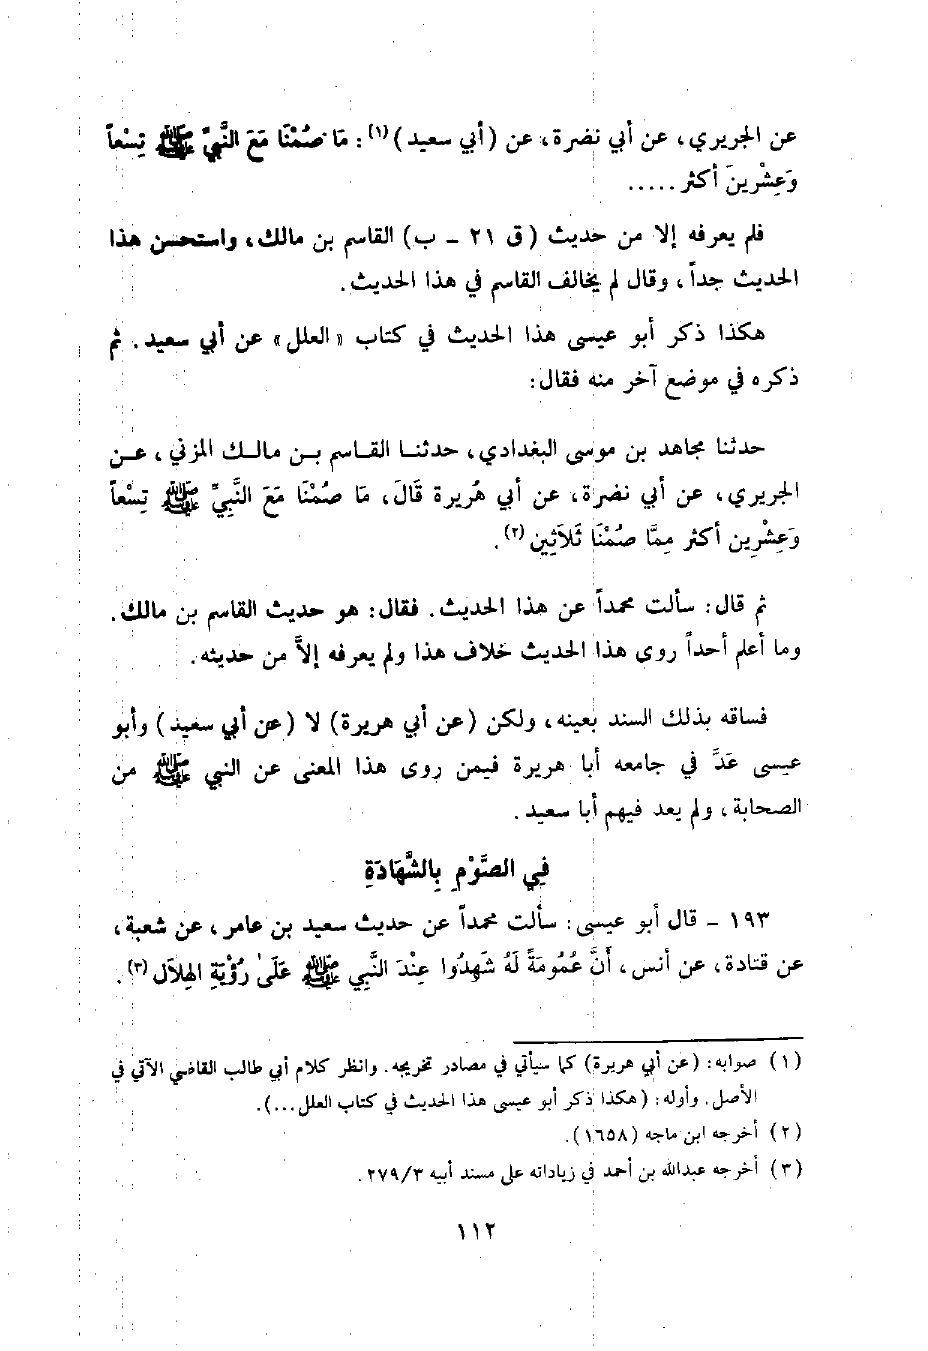 عن الجريري، عن أبي نضرة، عن (أبي سعيد)(١): مَا صُمْنَا مَعَ النَّبِيِّ ﷺ تِسْعاً
وَعِشْرينَ أكثر .....
فلم يعرفه إلا من حديث (ق ٢١ - ب) القاسم بن مالك، واستحسن هذا
الحديث جداً، وقال لم يخالف القاسم في هذا الحديث.
هكذا ذكر أبو عيسى هذا الحديث في كتاب «العلل» عن أبي سعيد. ثم
ذكره في موضع آخر منه فقال:
حدثنا مجاهد بن موسى البغدادي، حدثنا القاسم بن مالك المزني، عن
الجريري، عن أبي نضرة، عن أبي هُريرة قَالَ، مَا صُمْنَا مَعَ النَّبِيِّ ﷺ تِسْعاً
وَعِشْرِين أكثر مِمَّا صُمْنَا ثَلاَثِين(٢).
ثم قال: سألت محمداً عن هذا الحديث. فقال: هو حديث القاسم بن مالك.
وما أعلم أحداً روى هذا الحديث خلاف هذا ولم يعرفه إلاَّ من حديثه.
فساقه بذلك السند بعينه، ولكن (عن أبي هريرة) لا (عن أبي سعيد) وأبو
عيسى عَدَّ في جامعه أبا هريرة فيمن روى هذا المعنى عن النبي ﷺ من
الصحابة، ولم يعد فيهم أبا سعيد.
فِي الصَّوْمِ بِالشَّهَادَةِ
١٩٣ - قال أبو عيسى: سألت محمداً عن حديث سعيد بن عامر، عن شعبة،
عن قتادة، عن أنس، أَنَّ عُمُومَةً لَهُ شَهِدُوا عِنْدَ النَّبِي ﷺ عَلَىٰ رُؤْيَةِ الهِلاَل(٣).
(١) صوابه: (عن أبي هريرة) كما سيأتي في مصادر تخريجه. وانظر كلام أبي طالب القاضي الآتي في
الأصل. وأوله: (هكذا ذكر أبو عيسى هذا الحديث في كتاب العلل...).
(٢) أخرجه ابن ماجه (١٦٥٨).
(٣) أخرجه عبدالله بن أحمد في زياداته على مسند أبيه ٢٧٩/٣.
١١٢